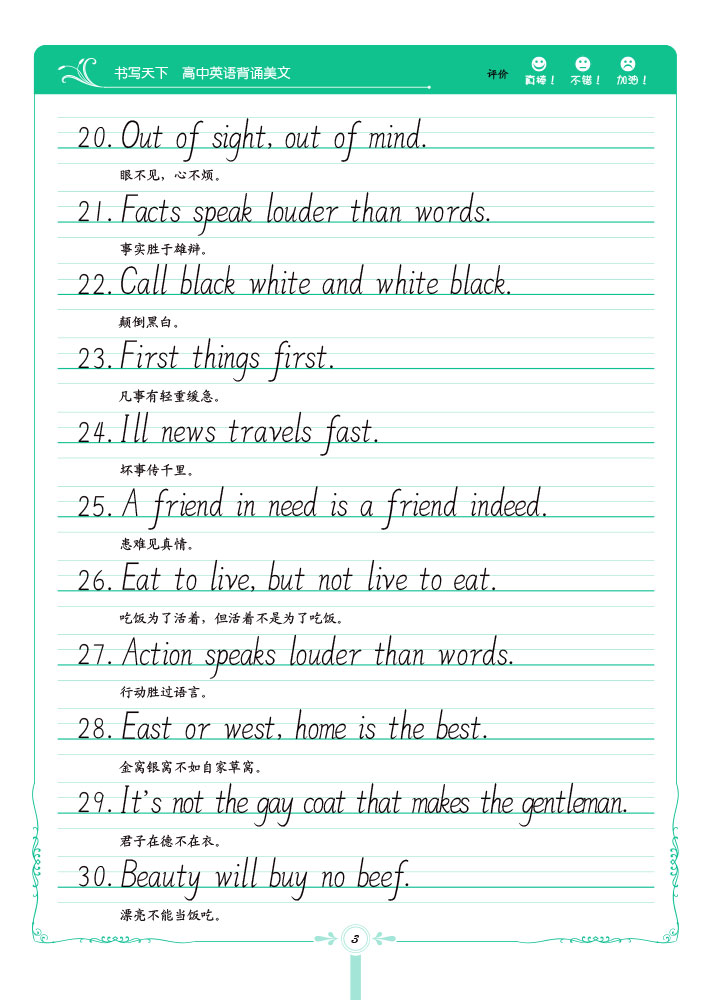 书写天下 高中英语背诵美文
评价 真棒！ 不错！ 加油！
20. Out of sight, out of mind.
眼不见，心不烦。
21. Facts speak louder than words.
事实胜于雄辩。
22. Call black white and white black.
颠倒黑白。
23. First things first.
凡事有轻重缓急。
24. Ill news travels fast.
坏事传千里。
25. A friend in need is a friend indeed.
患难见真情。
26. Eat to live, but not live to eat.
吃饭为了活着，但活着不是为了吃饭。
27. Action speaks louder than words.
行动胜过语言。
28. East or west, home is the best.
金窝银窝不如自家草窝。
29. It's not the gay coat that makes the gentleman.
君子在德不在衣。
30. Beauty will buy no beef.
漂亮不能当饭吃。
3